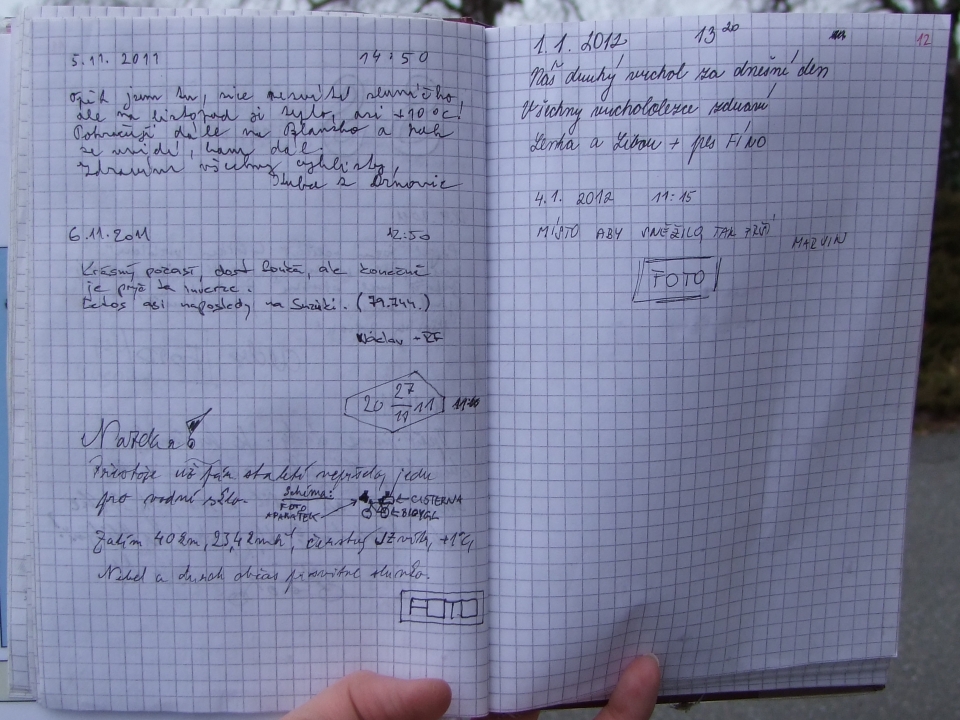 5.11. 2011 14:50
Opět jsem tu, sice nesvítí sluníčko,
ale na listopad je teplo, asi +10°C!
Pokračuji dále na Blansko a pak
se uvidí, kam dál.
Zdravím všechny cyklisty,
z Drnovic
6.11.2011 12:50
Krásný počasí, dost fouká, ale konečně
je pryč ta inverze.
Letos asi naposledy na Suzuki. (79.744.)
Václav
20 27 11
11
Nazdar
Přestože už pár staletí neprší, jedu
pro vodní
Schéma:
FOTO
APARÁTEK
CISTERNA
BICYGL
Zatím 40km, 23,4kmh⁻¹, čerstvý JZ vítr, +1°C,
a občas prosvitne slunko.
FOTO
1.1. 2012 13²⁰ 12
Náš druhý vrchol za dnešní den
Všechny vrchololezce zdraví
Lenka a Libor + pes FÍNO
4.1. 2012 11:15
MÍSTO ABY SNĚŽILO, TAK PRŠÍ
MARVIN
FOTO